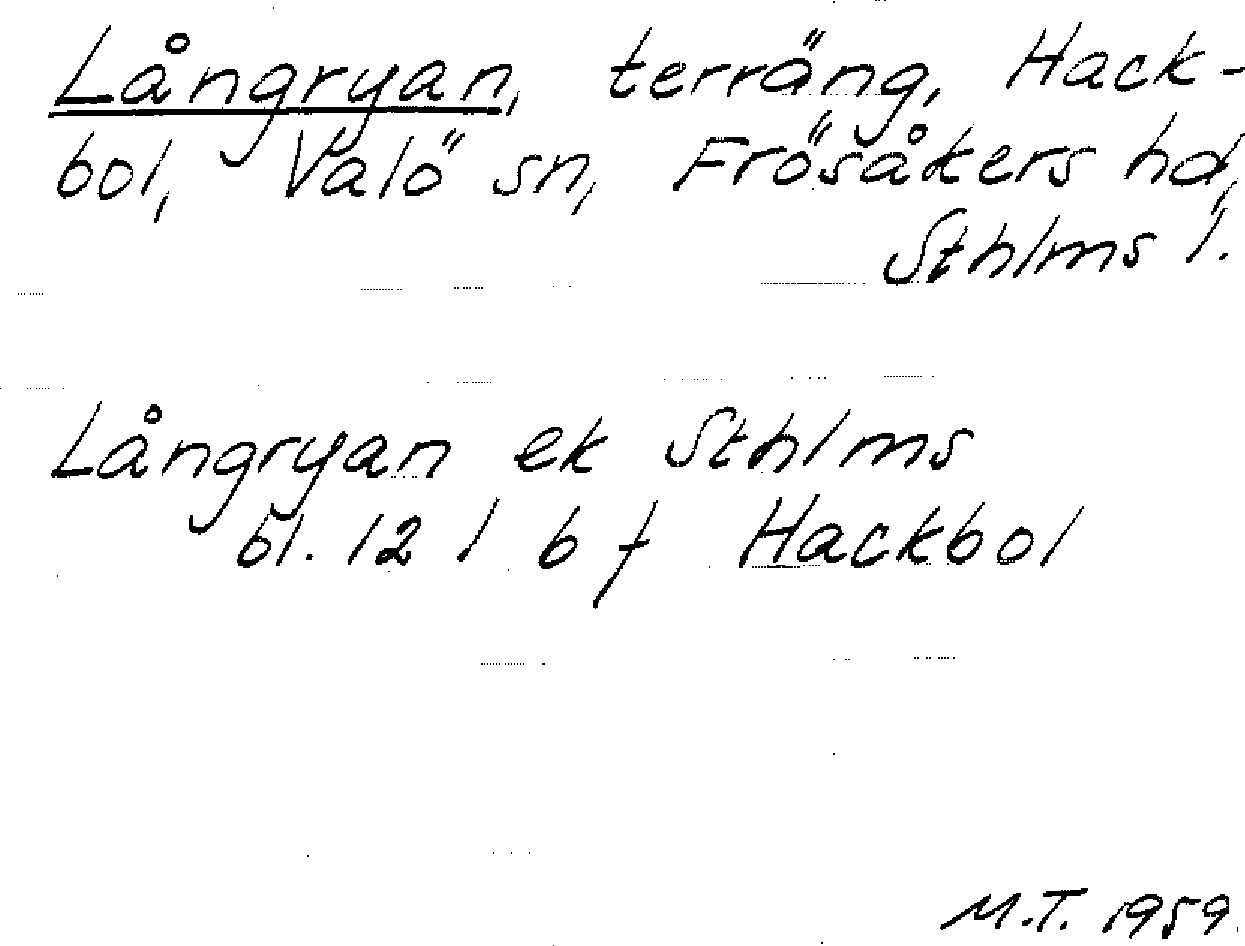 Långryan, terräng, Hack-
bol, Valö sn, Frösåkers hd,
Sthlms l.
Långryan ek Sthlms
bl. 12 l b f Hackbol
M.T. 1959.